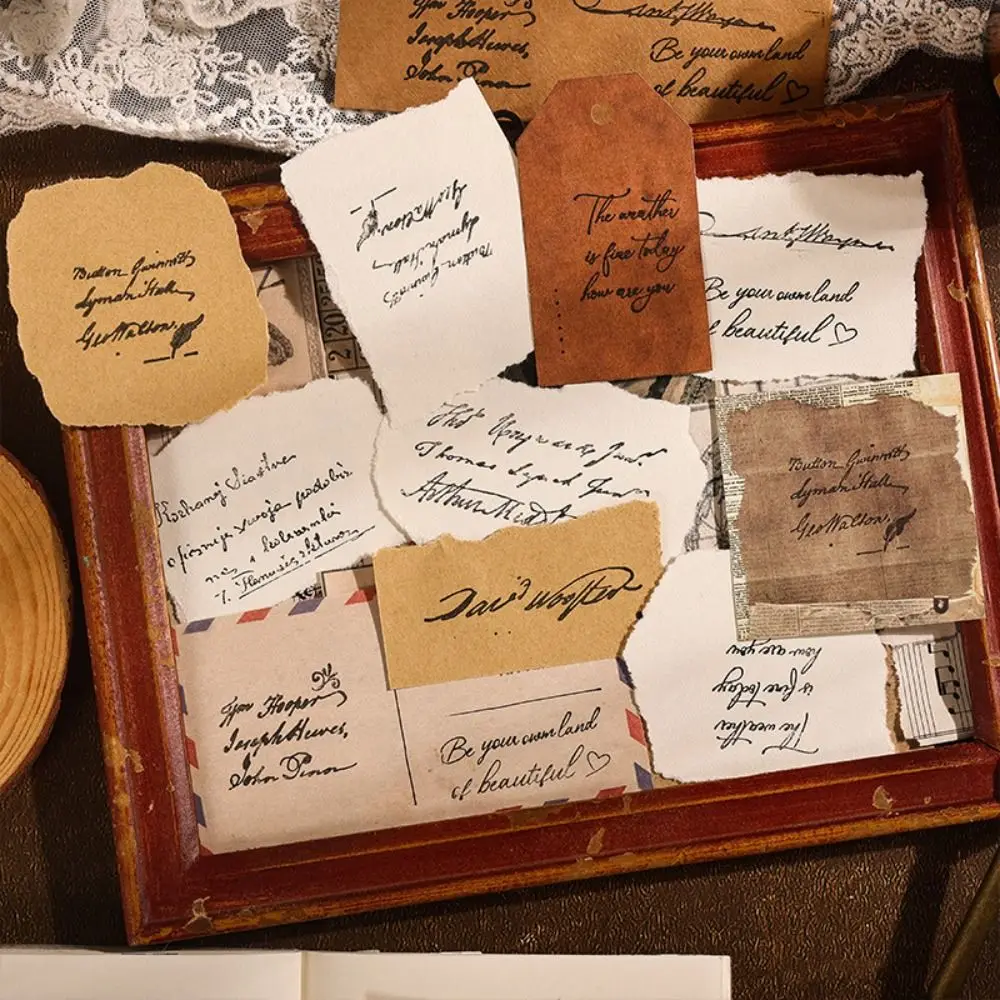 Wm Hooper
Joseph Hewes,
John Penn
Be your own land
of beautiful ♡
Button Gwinnett
Lyman Hall
Geo Walton.
Button Gwinnett
Lyman Hall
Geo Walton.
The weather
is fine today
how are you
Be your own land
beautiful ♡
Kochanej Siostrze
Thos Heyward Junr.
Thomas Lynch Junr.
Arthur Middl
Button Gwinnett
Lyman Hall
Geo Walton.
David Wooster
Wm Hooper
Joseph Hewes,
John Penn
Be your own land
of beautiful ♡
The weather
is fine today
how are you